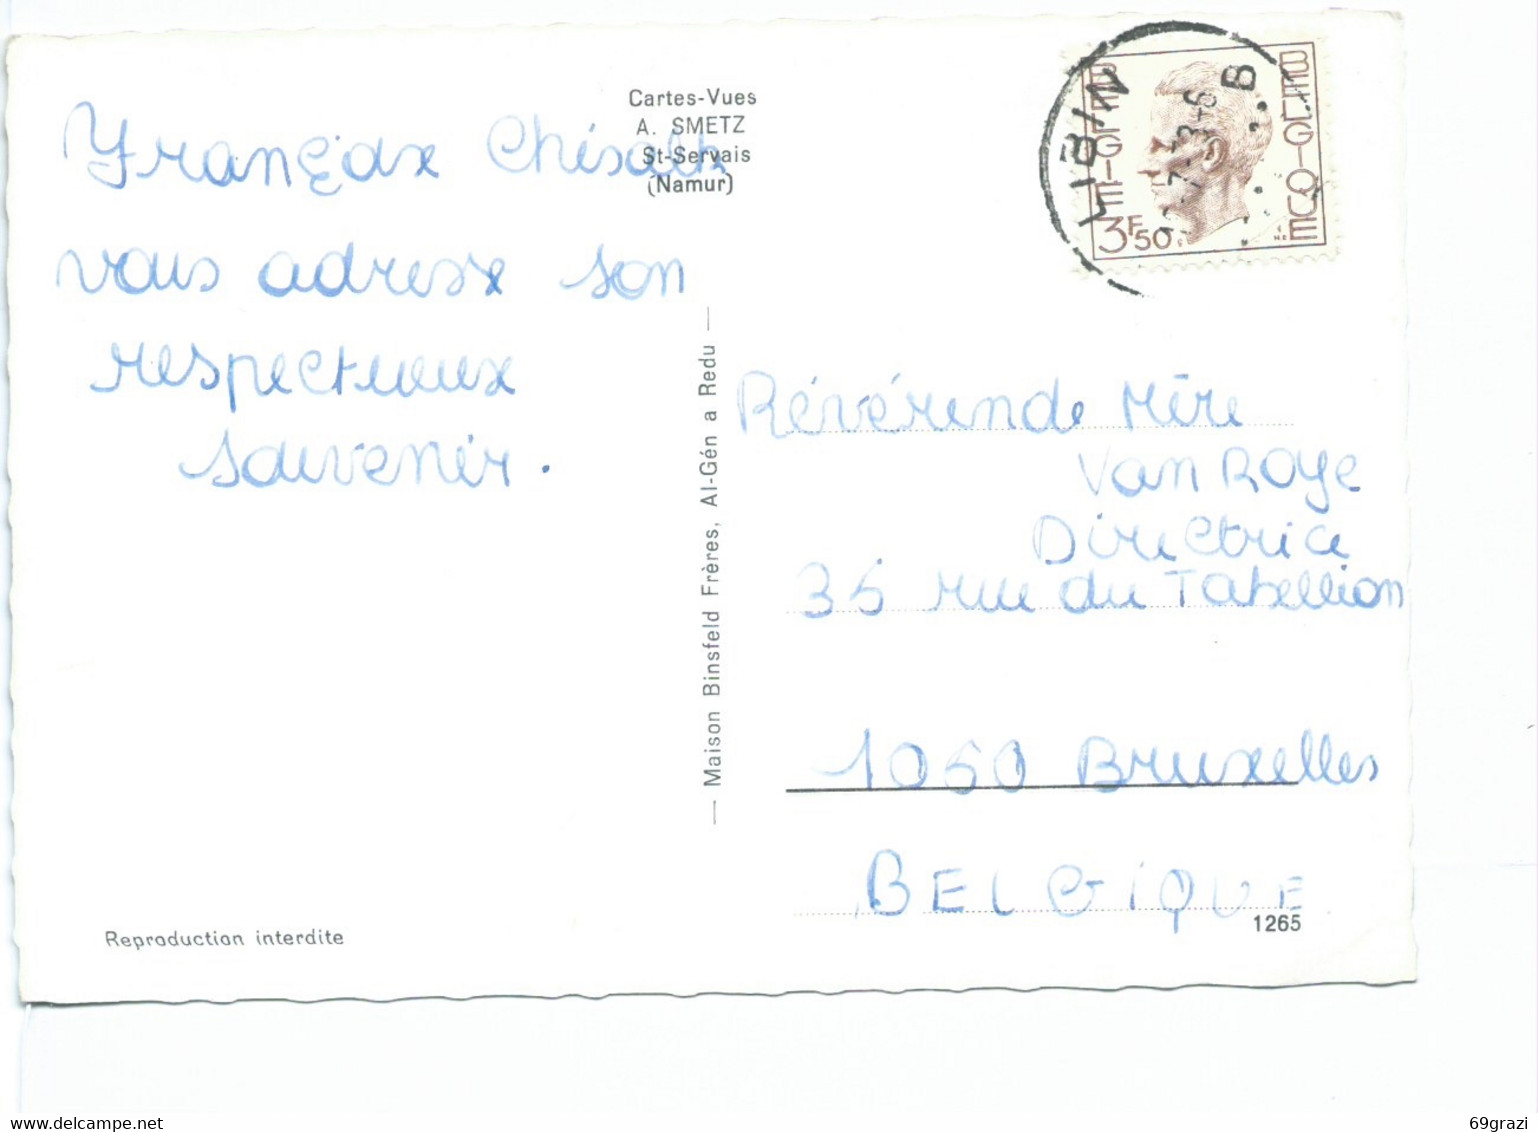 Cartes-Vues
A. SMETZ
St-Servais
(Namur)
Françoise
vous adresse son
respectueux
souvenir.
Maison Binsfeld Frères, Al-Gén a Redu
LIBIN
B
BELGIE BELGIQUE
3F50
Révérende Mère
Van Roye
Directrice
35 rue du Tabellion
1050 Bruxelles
BELGIQUE
1265
Reproduction interdite
69grazi